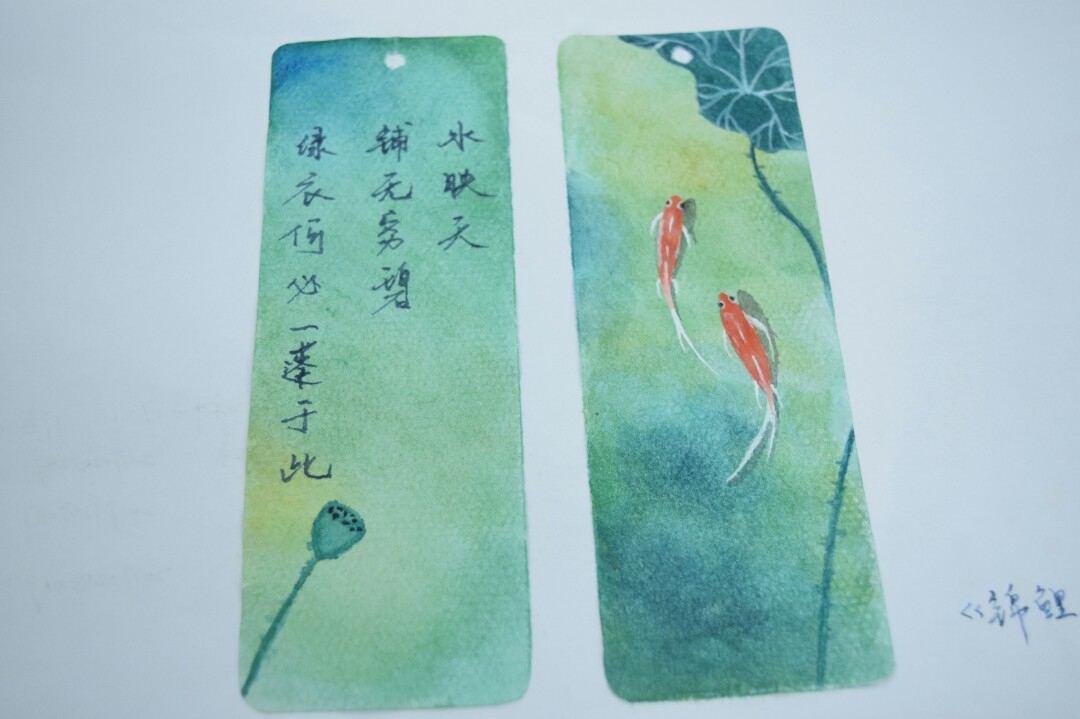 水映天
铺无穷碧
绿衣何必一蓬于此
《锦鲤